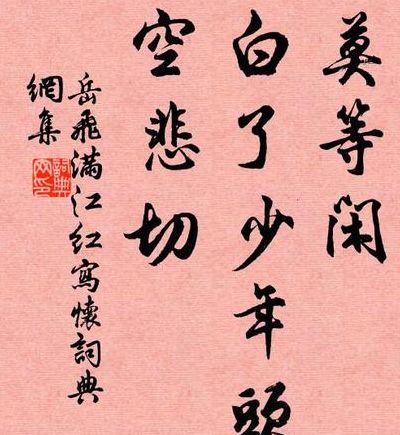 莫等闲
白了少年頭
空悲切
岳飛滿江红寫懷詞典
網集
詞典
网印